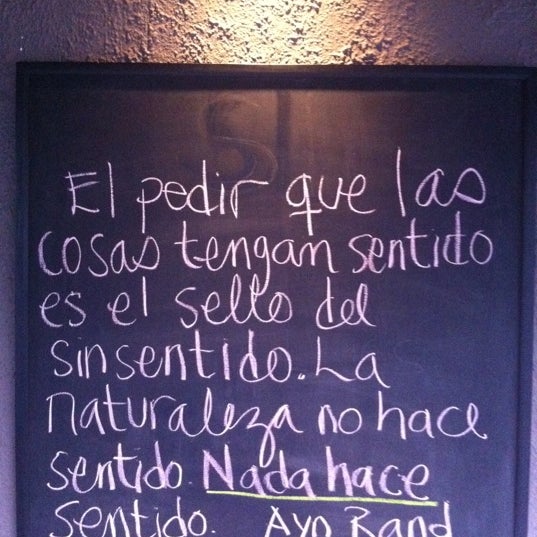 El pedir que las
cosas tengan sentido
es el sello del
sinsentido. La
naturaleza no hace
sentido. Nada hace
sentido. Ayn Rand